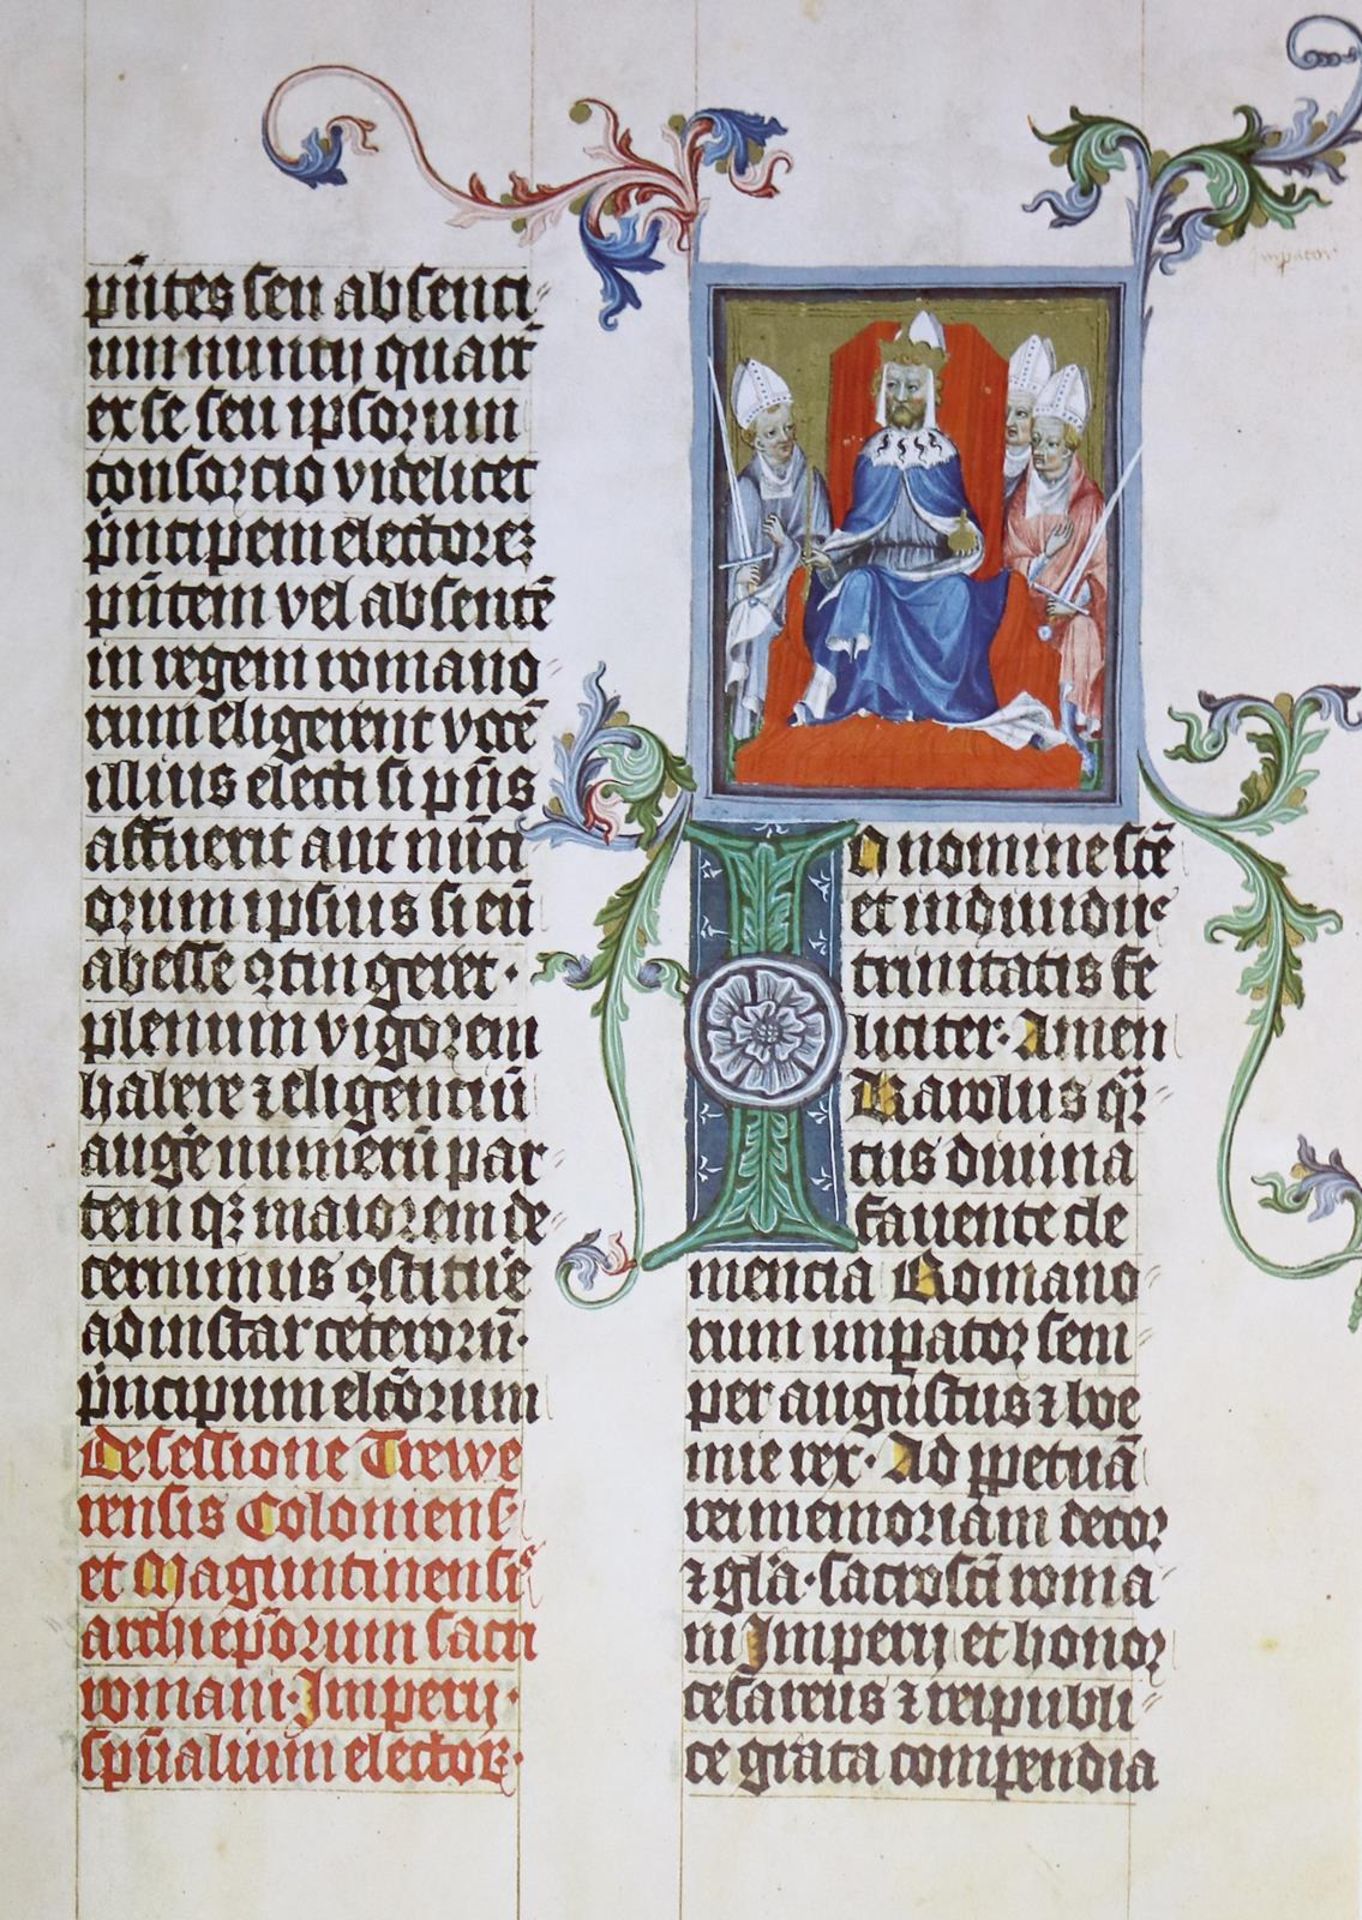 pn̄tes seu absenti⸗
um nuntij quartū
ex se seu ipsorum
consortio videlicet
p̄ncipem electorez
pn̄tem vel absentē
in regem romano⸗
rum eligerent vocē
illius electi si pn̄s
affuerit aut nūti
orum ipsius si eū
abesse ꝯtingeret·
plenum vigorem
habere ⁊ eligentiū
auge᷑ numerū par⸗
tem qꝫ maiorem de⸗
cernimus ꝯstitue᷑
ad instar ceterorū·
p̄ncipum elc̄orum
De sessione Treue
rensis Coloniens̄·
et Maguntinensis
archiep̄orum sacri
romani· Imperij·
spūalium electorꝝ·
Impator
In nomine sc̄e
et indiuidue
trinitatis fe
liciter· Amen
Karolus qr̄⸗
tus diuina
fauente cle
mencia Romano⸗
rum imꝑator sem⸗
per augustus ⁊ boe
mie rex· Ad ꝑpetuā
rei memoriam decor
⁊ glā· sacrosc̄i roma⸗
ni Imperij et honor
cesareus ⁊ reipubli⸗
ce grata compendia